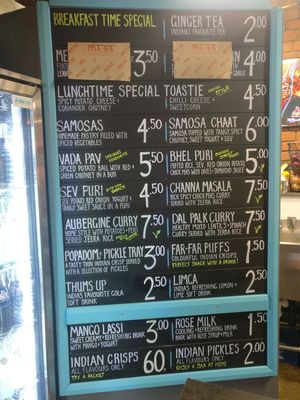 BREAKFAST TIME SPECIAL
GINGER TEA
INDIANS FAVOURITE TEA
2.00
3.50
4.00
LUNCHTIME SPECIAL TOASTIE
SPICY POTATO, CHEESE +
CORIANDER CHUTNEY
4.50
CHILLI CHEESE +
SWEETCORN
4.50
SAMOSAS
HOMEMADE PASTRY FILLED WITH
SPICED VEGETABLES
4.50
SAMOSA CHAAT
SAMOSA TOPPED WITH TANGY SPICY
CHUTNEY, SWEET YOGURT + SEV
6.00
VADA PAV
SPICED POTATO BALL WITH RED +
GREEN CHUTNEY IN A BUN
5.50
BHEL PURI
PUFFED RICE, SEV, RED ONION, POTATO,
CHICK PEAS WITH DATES + TAMARIND SAUCE
5.50
SEV PURI
SEV, POTATO, RED ONION, YOGURT +
TANGY SWEET SAUCE ON A PURI
4.50
CHANNA MASALA
SPICY CHICKPEAS CURRY
SERVED WITH JEERA RICE
7.50
AUBERGINE CURRY
HOME STYLE WITH POTATOES + PEAS
SERVED JEERA RICE
7.50
DAL PALK CURRY
HEALTHY MIXED LENTILS + SPINACH
CURRY SERVED WITH JEERA RICE
7.50
POPADOM + PICKLE TRAY
A TASTY THIN INDIAN CRISP SERVED
WITH A SELECTION OF PICKLES
3.00
FAR-FAR PUFFS
COLOURFUL INDIAN CRISPS
PERFECT SNACK WITH A DRINK!
1.50
THUMS UP
INDIANS FAVOURITE COLA
SOFT DRINK
2.50
LIMCA
INDIANS REFRESHING LEMON +
LIME SOFT DRINK
2.50
MANGO LASSI
SWEET, CREAMY + REFRESHING DRINK
WITH MANGO + YOGURT
3.00
ROSE MILK
COOLING + REFRESHING DRINK
MADE WITH ROSE SYRUP + MILK
1.50
INDIAN CRISPS
ALL FLAVOURS ONLY
TRY A PACKET
60p
INDIAN PICKLES
ALL FLAVOURS ONLY
ENJOY A JAR AT HOME
2.00